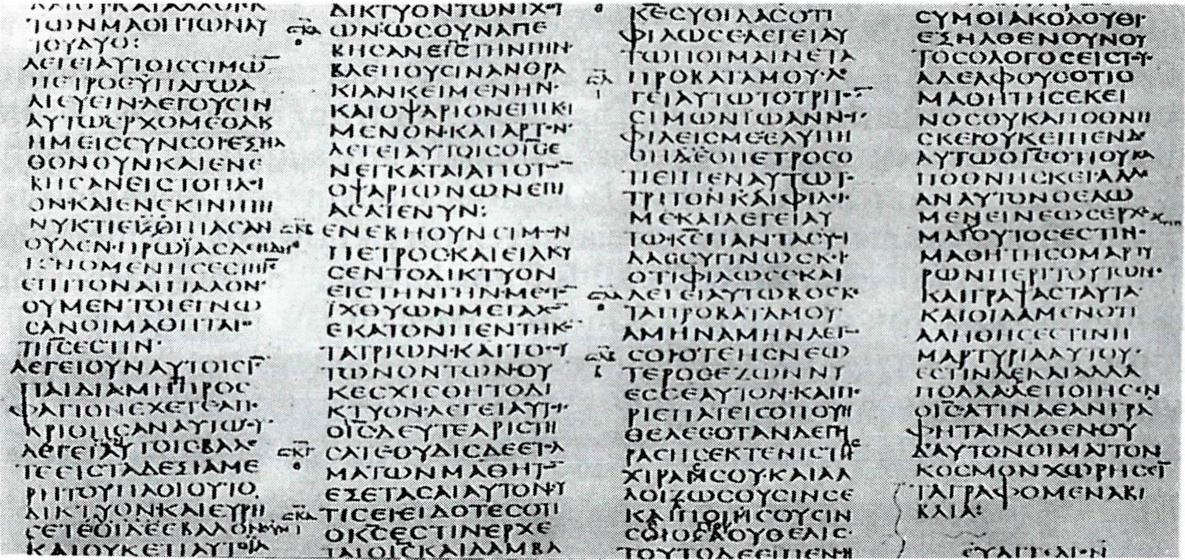 ΤΩΝΜΑΘΗΤΩΝΑΥ
ΤΟΥΔΥΟ:
ΛΕΓΕΙΑΥΤΟΙϹϹΙΜΩ̅
ΠΕΤΡΟϹΥΠΑΓΩΑ
ΛΙΕΥΕΙΝ·ΛΕΓΟΥϹΙΝ
ΑΥΤΩΕΡΧΟΜΕΘΑΚ
ΗΜΕΙϹϹΥΝϹΟΙΕΞΗΛ
ΘΟΝΟΥΝΚΑΙΕΝΕ
ΒΗϹΑΝΕΙϹΤΟΠΛΟΙ
ΟΝΚΑΙΕΝΕΚΙΝΗΤΗ
ΝΥΚΤΙ
ΟΥΔΕΝ·ΠΡΩΪΑϹΔΕΗΔΗ
ΓΕΝΟΜΕΝΗϹΕϹΤΗΙ̅Ϲ̅
ΕΠΙΤΟΝΑΙΓΙΑΛΟΝ·
ΟΥΜΕΝΤΟΙΕΓΝΩ
ϹΑΝΟΙΜΑΘΗΤΑΙΟ
ΤΙΙ̅Ϲ̅ΕϹΤΙΝ·
ΛΕΓΕΙΟΥΝΑΥΤΟΙϹΙ̅Ϲ̅
ΠΑΙΔΙΑΜΗΠΡΟϹ
ΦΑΓΙΟΝΕΧΕΤΕΑΠΕ
ΚΡΙΘΗϹΑΝΑΥΤΩΟΥ
ΛΕΓΕΙΑΥΤΟΙϹΒΑΛΕ
ΤΕΕΙϹΤΑΔΕΞΙΑΜΕ
ΡΗΤΟΥΠΛΟΙΟΥΤΟ
ΔΙΚΤΥΟΝΚΑΙΕΥΡΗ
ϹΕΤΕΟΙΔΕΕΒΑΛΟΝ
ΚΑΙΟΥΚΕΤΙΑΥΤΟ
ΔΙΚΤΥΟΝΤΩΝΙΧΘΥ
ΩΝ·ΩϹΟΥΝΑΠΕ
ΒΗϹΑΝΕΙϹΤΗΝΓΗΝ·
ΒΛΕΠΟΥϹΙΝΑΝΘΡΑ
ΚΙΑΝΚΕΙΜΕΝΗΝ·
ΚΑΙΟΨΑΡΙΟΝΕΠΙΚΙ
ΜΕΝΟΝ·ΚΑΙΑΡΤΟΝ·
ΛΕΓΕΙΑΥΤΟΙϹΟΙ̅Ϲ̅Ε
ΝΕΓΚΑΤΑΙΑΠΟΤΩ̅
ΟΨΑΡΙΩΝΩΝΕΠΙ
ΑϹΑΤΕΝΥΝ:
ΕΝΕΒΗΟΥΝϹΙΜΩΝ
ΠΕΤΡΟϹΚΑΙΕΙΛΚΥ
ϹΕΝΤΟΔΙΚΤΥΟΝ
ΕΙϹΤΗΝΓΗΝ·ΜΕϹΤΟ̅
ΪΧΘΥΩΝΜΕΓΑΛΩ̅
ΕΚΑΤΟΝΠΕΝΤΗΚΟ̅
ΤΑΤΡΙΩΝ·ΚΑΙΤΟϹΟΥ
ΤΩΝΟΝΤΩΝΟΥ
ΚΕϹΧΙϹΘΗΤΟΔΙ
ΚΤΥΟΝ·ΛΕΓΕΙΑΥΤΟΙϹ
ΟΙ̅Ϲ̅ΔΕΥΤΕΑΡΙϹΤΗ
ϹΑΤΕ·ΟΥΔΙϹΔΕΕΤΟΛ
ΜΑΤΩΝΜΑΘΗΤΩ̅
ΕΞΕΤΑϹΑΙΑΥΤΟΝ·ϹΥ
ΤΙϹΕΙΕΙΔΟΤΕϹΟΤΙ
ΟΚ̅Ϲ̅ΕϹΤΙΝΕΡΧΕ
ΤΑΙΟΙ̅Ϲ̅ΚΑΙΛΑΜΒΑ
ΚΕϹΥΟΙΔΑϹΟΤΙ
ΦΙΛΩϹΕΛΕΓΕΙΑΥ
ΤΩΠΟΙΜΑΙΝΕΤΑ
ΠΡΟΒΑΤΑΜΟΥ·ΛΕ
ΓΕΙΑΥΤΩΤΟΤΡΙΤΟ̅
ϹΙΜΩΝΙΩΑΝΝΟΥ·
ΦΙΛΕΙϹΜΕΕΛΥΠΗ
ΘΗΔΕΟΠΕΤΡΟϹΟ
ΤΙΕΙΠΕΝΑΥΤΩΤΟ
ΤΡΙΤΟΝΚΑΙΦΙΛΕΙϹ
ΜΕΚΑΙΛΕΓΕΙΑΥ
ΤΩ·Κ̅Ε̅ΠΑΝΤΑϹΥΟΙ
ΔΑϹϹΥΓΙΝΩϹΚΕΙϹ
ΟΤΙΦΙΛΩϹΕΚΑΙ
ΛΕΓΕΙΑΥΤΩΒΟϹΚΕ
ΤΑΠΡΟΒΑΤΑΜΟΥ
ΑΜΗΝΑΜΗΝΛΕΓΩ̅
ϹΟΙΟΤΕΗϹΝΕΩ
ΤΕΡΟϹΕΖΩΝΝΥ
ΕϹϹΕΑΥΤΟΝ·ΚΑΙΠΕ
ΡΙΕΠΑΤΕΙϹΟΠΟΥΗ
ΘΕΛΕϹΟΤΑΝΔΕΓΗ
ΡΑϹΗϹΕΚΤΕΝΙϹΤΑϹ
ΧΙΡΑϹϹΟΥ·ΚΑΙΑΛ
ΛΟΙΖΩϹΟΥϹΙΝϹΕ
ΚΑΙΠΟΙΗϹΟΥϹΙΝ
ϹΟΙΟϹΑΟΥΘΕΛΙϹ·
ΤΟΥΤΟΔΕΕΙΠΕΝϹΗ
ϹΥΜΟΙΑΚΟΛΟΥΘΙ·
ΕΞΗΛΘΕΝΟΥΝΟΥ
ΤΟϹΟΛΟΓΟϹΕΙϹΤΟΥϹ
ΑΔΕΛΦΟΥϹΟΤΙΟ
ΜΑΘΗΤΗϹΕΚΕΙ
ΝΟϹΟΥΚΑΠΟΘΝΗ
ϹΚΕΙΟΥΚΕΙΠΕΝΔΕ
ΑΥΤΩΟΙ̅Ϲ̅ΟΤΙΟΥΚΑ
ΠΟΘΝΗϹΚΕΙΑΛΛ
ΑΝΑΥΤΟΝΘΕΛΩ
ΜΕΝΕΙΝΕΩϹΕΡΧΟΜΑΙ
ΟΥΤΟϹΕϹΤΙΝ·
ΜΑΘΗΤΗϹΟΜΑΡΤΥ
ΡΩΝΠΕΡΙΤΟΥΤΩΝ·
ΚΑΙΓΡΑΨΑϹΤΑΥΤΑ·
ΚΑΙΟΙΔΑΜΕΝΟΤΙ
ΑΛΗΘΗϹΕϹΤΙΝΗ
ΜΑΡΤΥΡΙΑΑΥΤΟΥ·
ΕϹΤΙΝΔΕΚΑΙΑΛΛΑ
ΠΟΛΛΑΑΕΠΟΙΗϹΕΝ
ΟΙ̅Ϲ̅ΑΤΙΝΑΕΑΝΓΡΑ
ΦΗΤΑΙΚΑΘΕΝΟΥ
Δ'ΑΥΤΟΝΟΙΜΑΙΤΟΝ
ΚΟϹΜΟΝΧΩΡΗϹΕΙ̅
ΤΑΓΡΑΦΟΜΕΝΑΒΙ
ΒΛΙΑ: